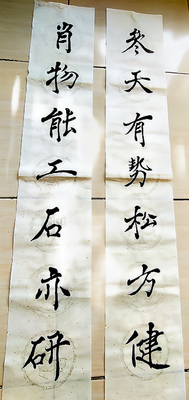 参天有势松方健
肖物能工石亦研